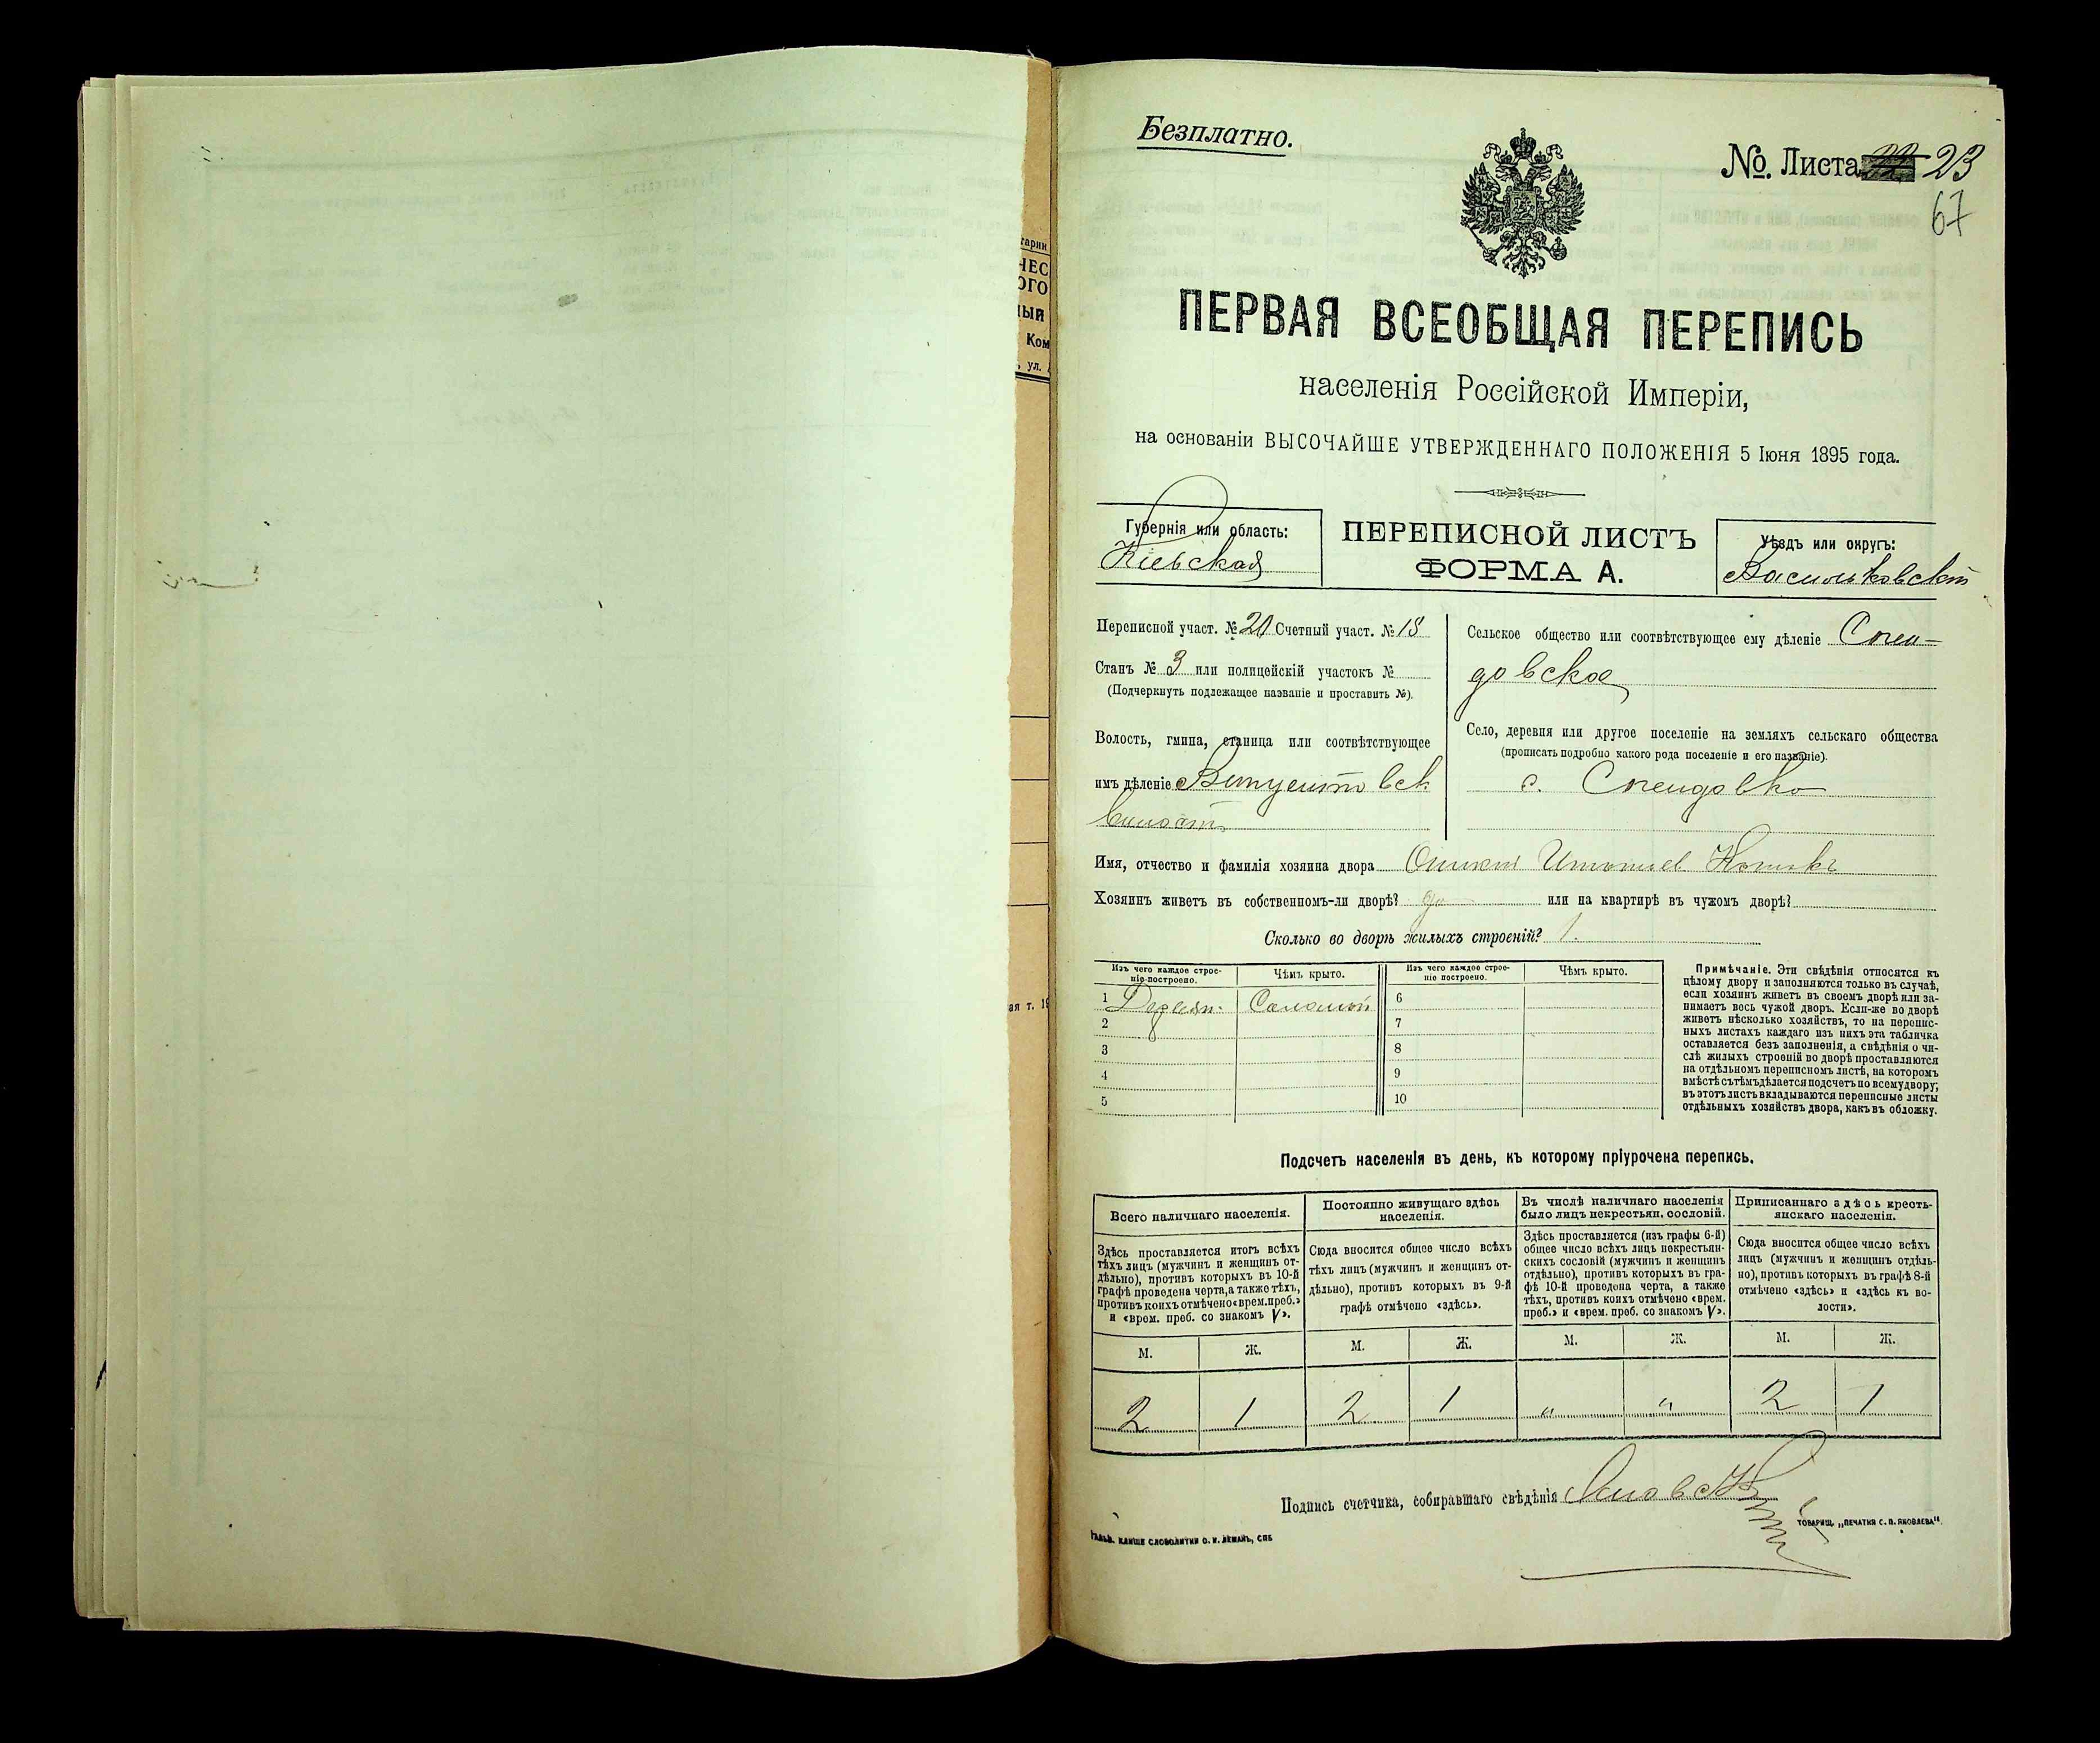 Безплатно.
№. Листа 23
67
ПЕРВАЯ ВСЕОБЩАЯ ПЕРЕПИСЬ
населенія Россійской Имперіи,
на основаніи ВЫСОЧАЙШЕ УТВЕРЖДЕННАГО ПОЛОЖЕНІЯ 5 Іюня 1895 года.
Губернія или область:
Кіевская
ПЕРЕПИСНОЙ ЛИСТЪ
ФОРМА А.
Уѣздъ или округъ:
Васильковскій
Переписной участ. № 20 Счетный участ. № 18
Станъ № 3 или полицейскій участокъ №
(Подчеркнуть подлежащее названіе и проставить №).
Волость, гмина, станица или соотвѣтствующее
имъ дѣленіе
Сельское общество или соотвѣтствующее ему дѣленіе Спен-
довское
Село, деревня или другое поселеніе на земляхъ сельскаго общества
(прописать подробно какого рода поселеніе и его названіе).
с. Спендовка
Имя, отчество и фамилія хозяина двора
Хозяинъ живетъ въ собственномъ-ли дворѣ? да или на квартирѣ въ чужомъ дворѣ?
Сколько во дворѣ жилыхъ строеній? 1.
Изъ чего каждое строе-
ніе построено.
Чѣмъ крыто.
Изъ чего каждое строе-
ніе построено.
Чѣмъ крыто.
1 Соломой 6
2 7
3 8
4 9
5 10
Примѣчаніе. Эти свѣдѣнія относятся къ
цѣлому двору и заполняются только въ случаѣ,
если хозяинъ живетъ въ своемъ дворѣ или за-
нимаетъ весь чужой дворъ. Если-же во дворѣ
живетъ нѣсколько хозяйствъ, то на перепис-
ныхъ листахъ каждаго изъ нихъ эта табличка
оставляется безъ заполненія, а свѣдѣнія о чи-
слѣ жилыхъ строеній во дворѣ проставляются
на отдѣльномъ переписномъ листѣ, на которомъ
вмѣстѣ съ тѣмъ дѣлается подсчетъ по всему двору;
въ этотъ листъ вкладываются переписные листы
отдѣльныхъ хозяйствъ двора, какъ въ обложку.
Подсчетъ населенія въ день, къ которому пріурочена перепись.
Всего наличнаго населенія.
Здѣсь проставляется итогъ всѣхъ
тѣхъ лицъ (мужчинъ и женщинъ от-
дѣльно), противъ которыхъ въ 10-й
графѣ проведена черта, а также тѣхъ,
противъ коихъ отмѣчено «врем. преб.»
и «врем. преб. со знакомъ V».
Постоянно живущаго здѣсь
населенія.
Сюда вносится общее число всѣхъ
тѣхъ лицъ (мужчинъ и женщинъ от-
дѣльно), противъ которыхъ въ 9-й
графѣ отмѣчено «здѣсь».
Въ числѣ наличнаго населенія
было лицъ некрестьян. сословій.
Здѣсь проставляется (изъ графы 6-й)
общее число всѣхъ лицъ некрестьян-
скихъ сословій (мужчинъ и женщинъ
отдѣльно), противъ которыхъ въ гра-
фѣ 10-й проведена черта, а также
тѣхъ, противъ коихъ отмѣчено «врем.
преб.» и «врем. преб. со знакомъ V».
Приписаннаго здѣсь кресть-
янскаго населенія.
Сюда вносится общее число всѣхъ
лицъ (мужчинъ и женщинъ отдѣль-
но), противъ которыхъ въ графѣ 8-й
отмѣчено «здѣсь» и «здѣсь въ во-
лости».
М. Ж. М. Ж. М. Ж. М. Ж.
2 1 2 1 " " 2 1
Подпись счетчика, собиравшаго свѣдѣнія
ГАЛЬВ. КЛИШЕ СЛОВОЛИТНИ О. И. ЛЕМАНЪ, СПБ
ТОВАРИЩ. „ПЕЧАТНЯ С. П. ЯКОВЛЕВА".